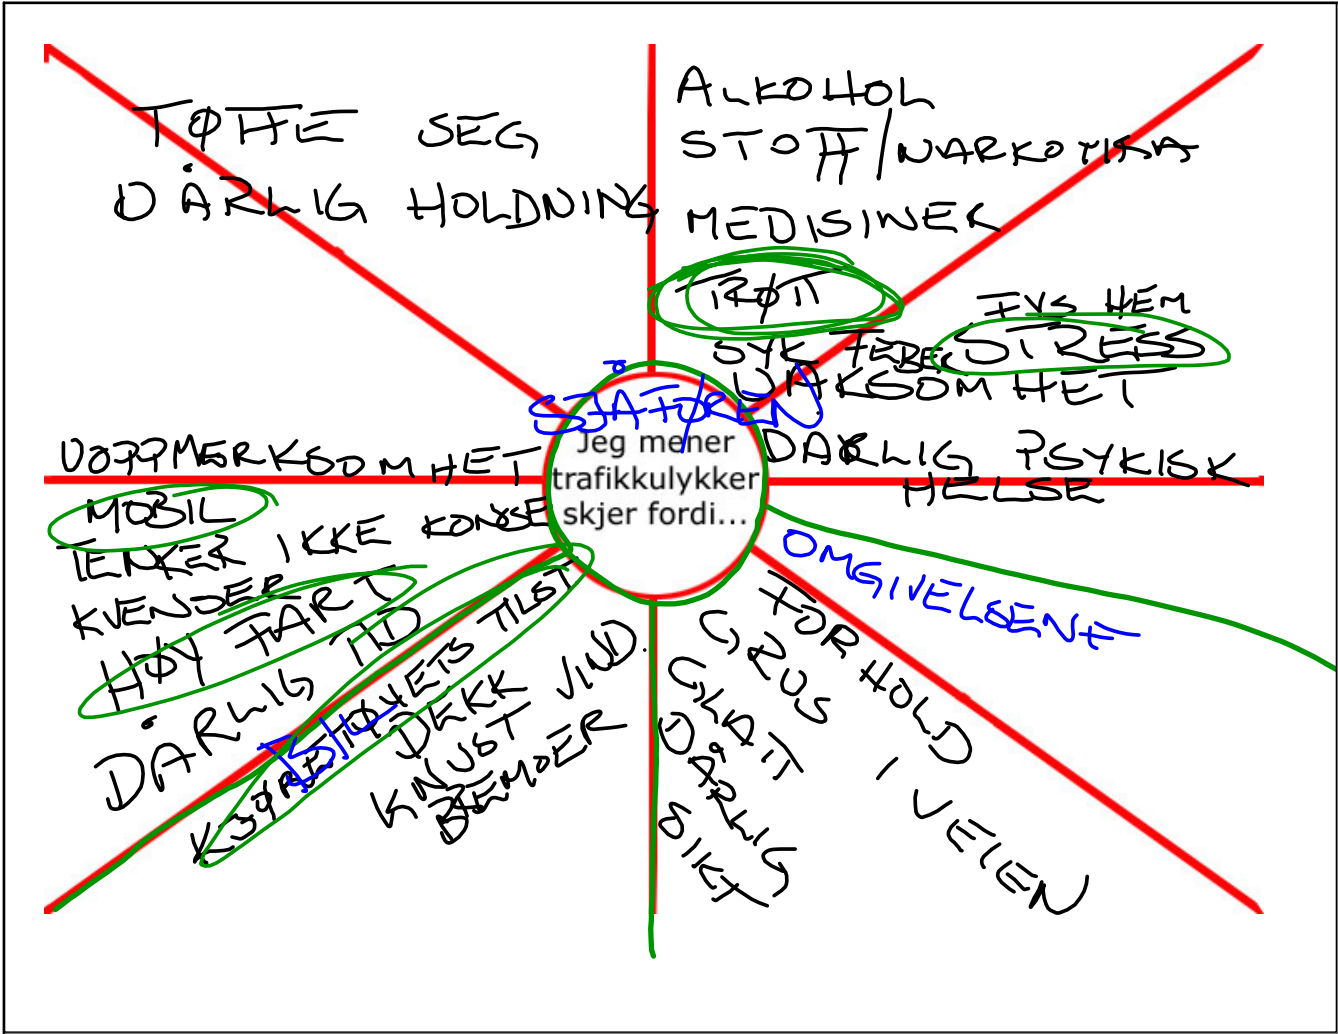 TØFFE SEG
DÅRLIG HOLDNING
ALKOHOL
STOFF/NARKOTIKA
MEDISINER
TRØTT
SYK FEBER
FYS HEM
STRESS
UAKSOMHET
DARLIG PSYKISK
HELSE
SJÅFØREN
Jeg mener
trafikkulykker
skjer fordi...
UOPPMERKSOMHET
MOBIL
TENKER IKKE KONSE
HØY FART
DÅRLIG TID
BIL
KJØRETØYETS TILST
DEKK VIND.
KNUST
BREMSER
OMGIVELSENE
FORHOLD I VEIEN
GRUS
GLATT
DÅRLIG
SIKT